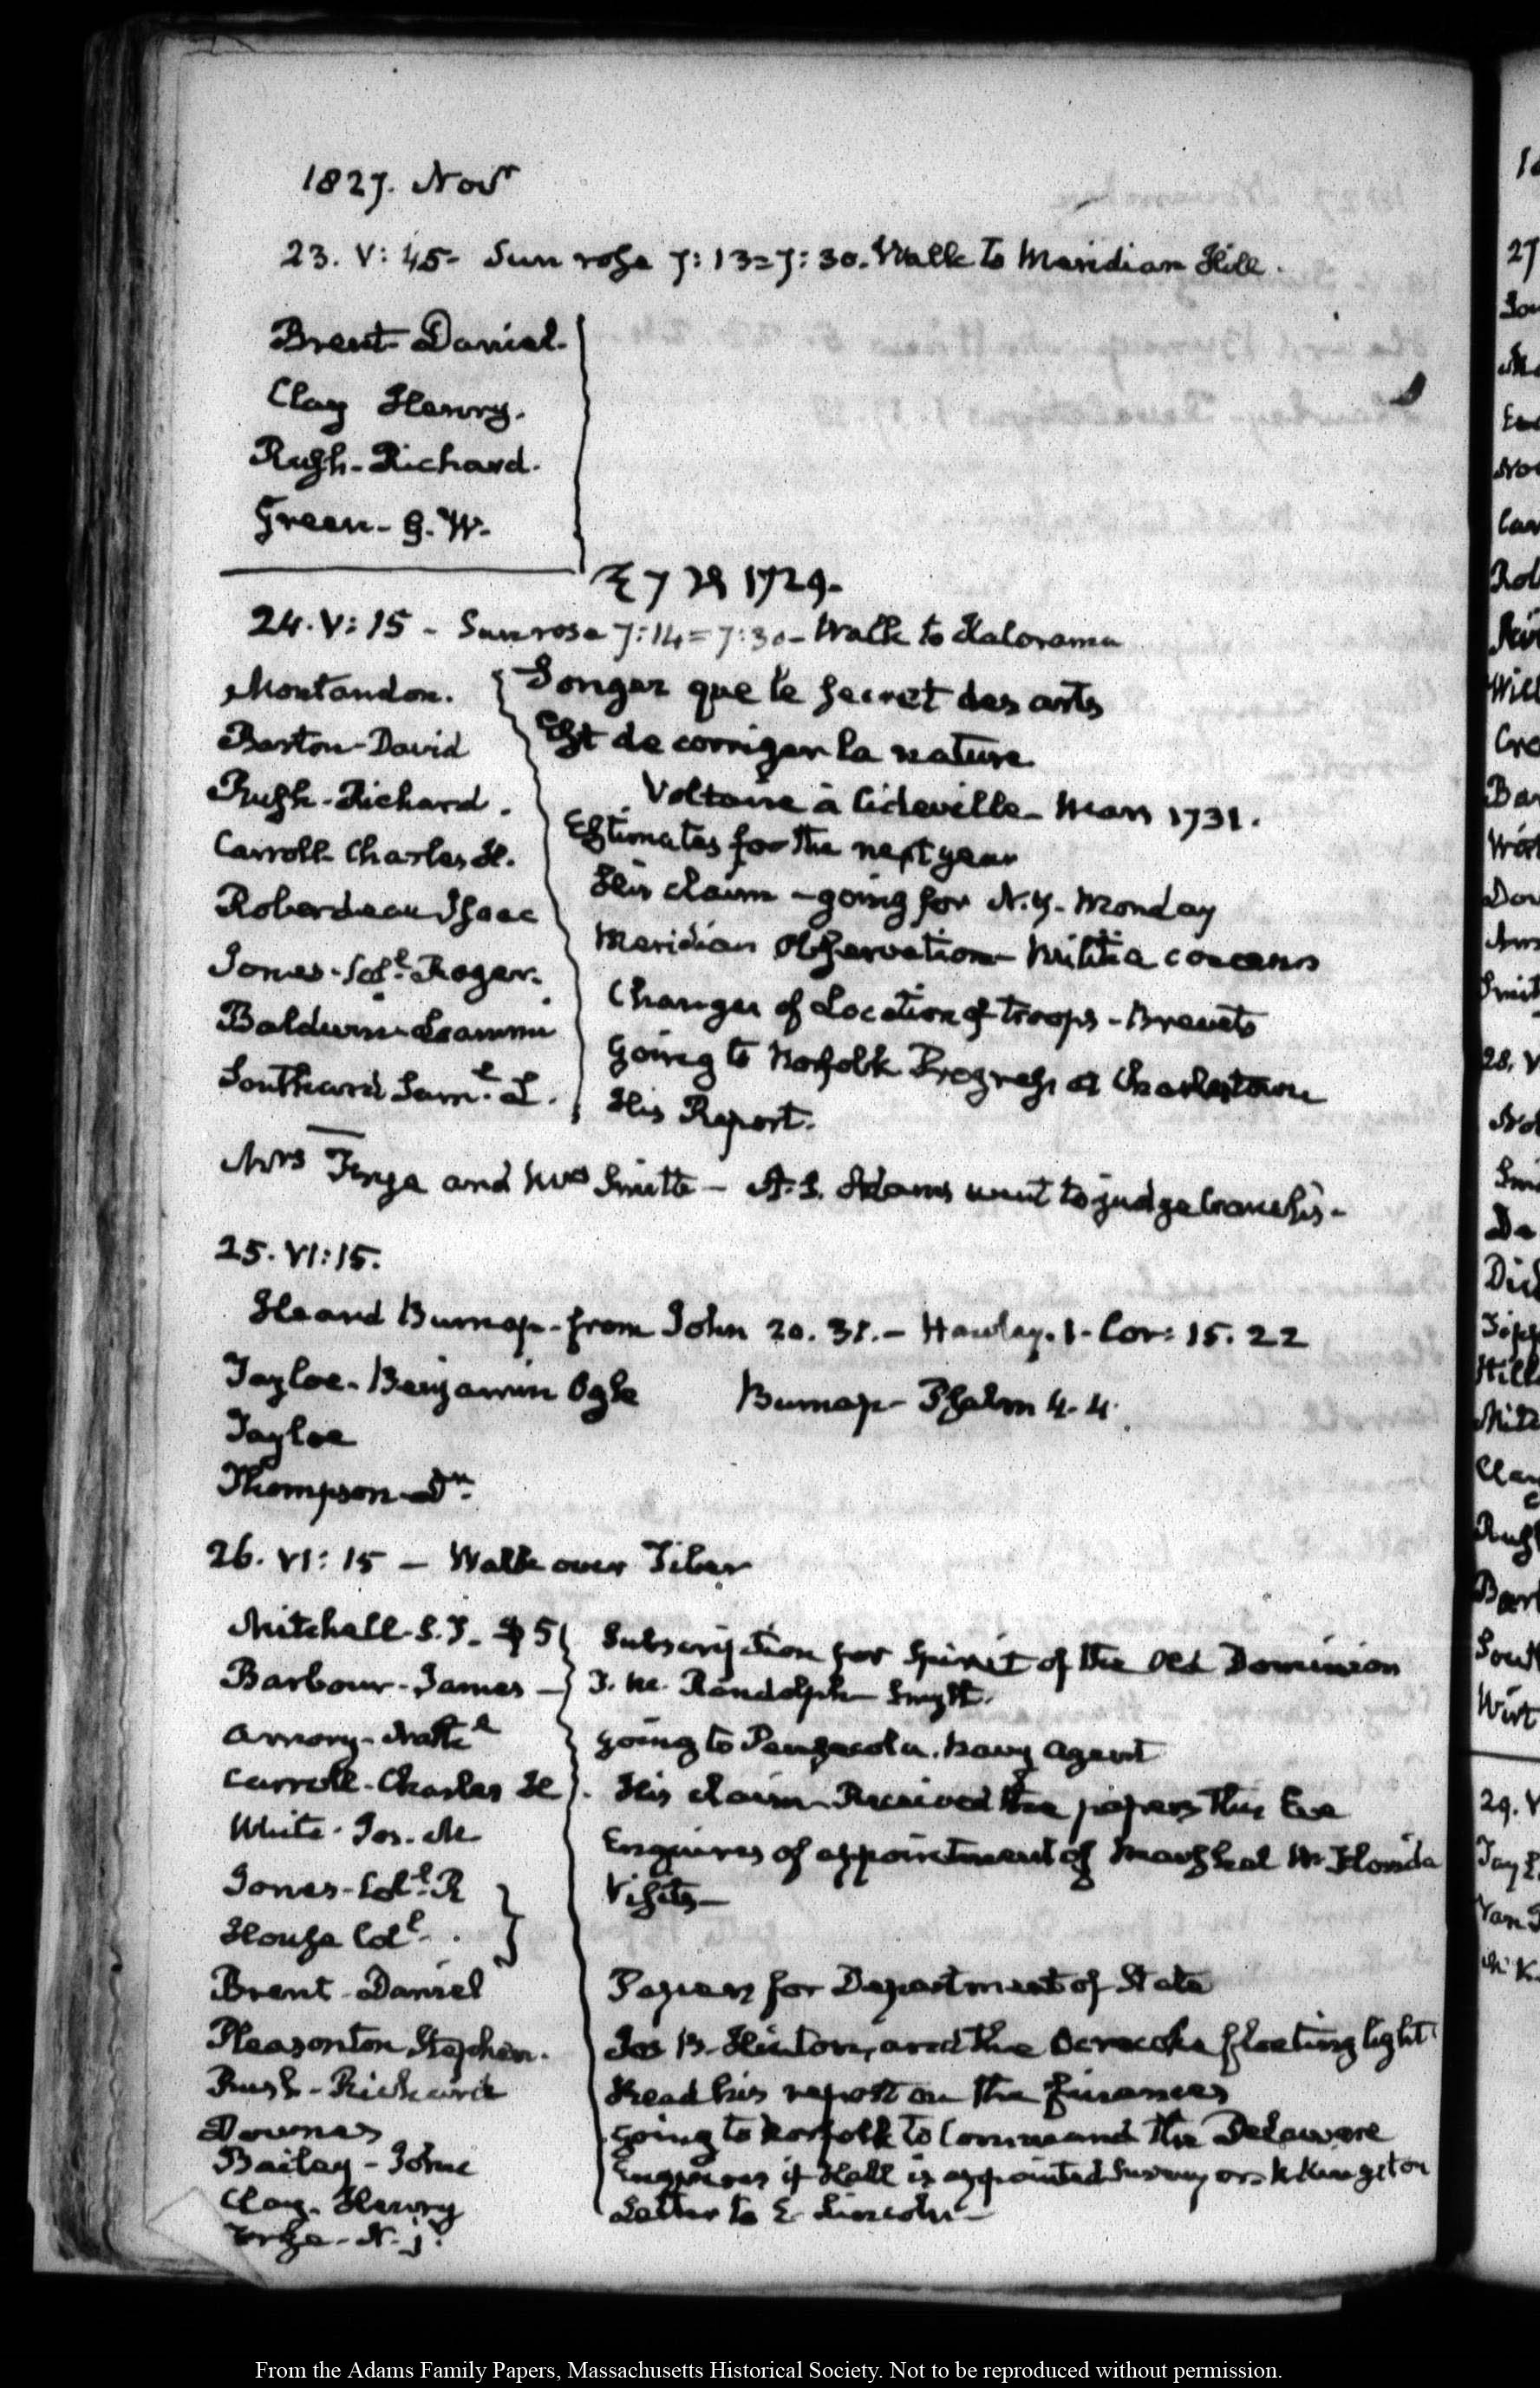 1827. Novr
23. V: 45- Sun rose 7:13=7:30. Walk to Meridian Hill.
Brent Daniel.
Clay Henry.
Rush-Richard.
Green-
1729.
24. V: 15 - Sun rose 7:14=7:30- Walk to Kalorama
Montandon. Songez que le secret des arts
Barton-David Est de corriger la nature
Voltaire à Cideville- Mars 1731.
Rush-Richard. Estimates for the next year
Carroll Charles H. His claim - going for N.Y. Monday
Roberdeau Isaac Meridian Observation- Militia concerns
Jones-Coll. Roger. Changes of Location of troops - Brevets
Baldwin Loammi Going to Norfolk Progress at Charlestown
Southard Saml. L. His Report.
Mrs Frye and Mrs Smith - Adams went to
25. VI:15.
Heard Burnap-from John 20. 31.- Hawley. 1. Cor: 15. 22
Tayloe-Benjamin Ogle Burnap- Psalm 4. 4.
Tayloe
Thompson-
26. VI: 15 - Walk over Tiber
Mitchell-S.T. $5 Subscription for Spirit of the Old Dominion
Barbour-James - T. M. Randolph- Smyth.
Amory-Nathl going to Pensacola. Navy Agent
Carroll-Charles H. His claim- Received the papers this Eve
White-Jos. M Enquires of appointment of Marshal W. Florida
Jones-Coll. R Visits-
House Coll.
Brent-Daniel Papers for Department of State
Pleasonton Stephen. Jos B. Hinton, and the Ocracoke floating light
Rush-Richard Read his report on the finances
Downes going to Norfolk to Command the Delaware
Bailey-John Enquires if Hall is appointed Surveyor
Clay-Henry Letter to E Lincoln-
Frye-N. jr.
From the Adams Family Papers, Massachusetts Historical Society. Not to be reproduced without permission.